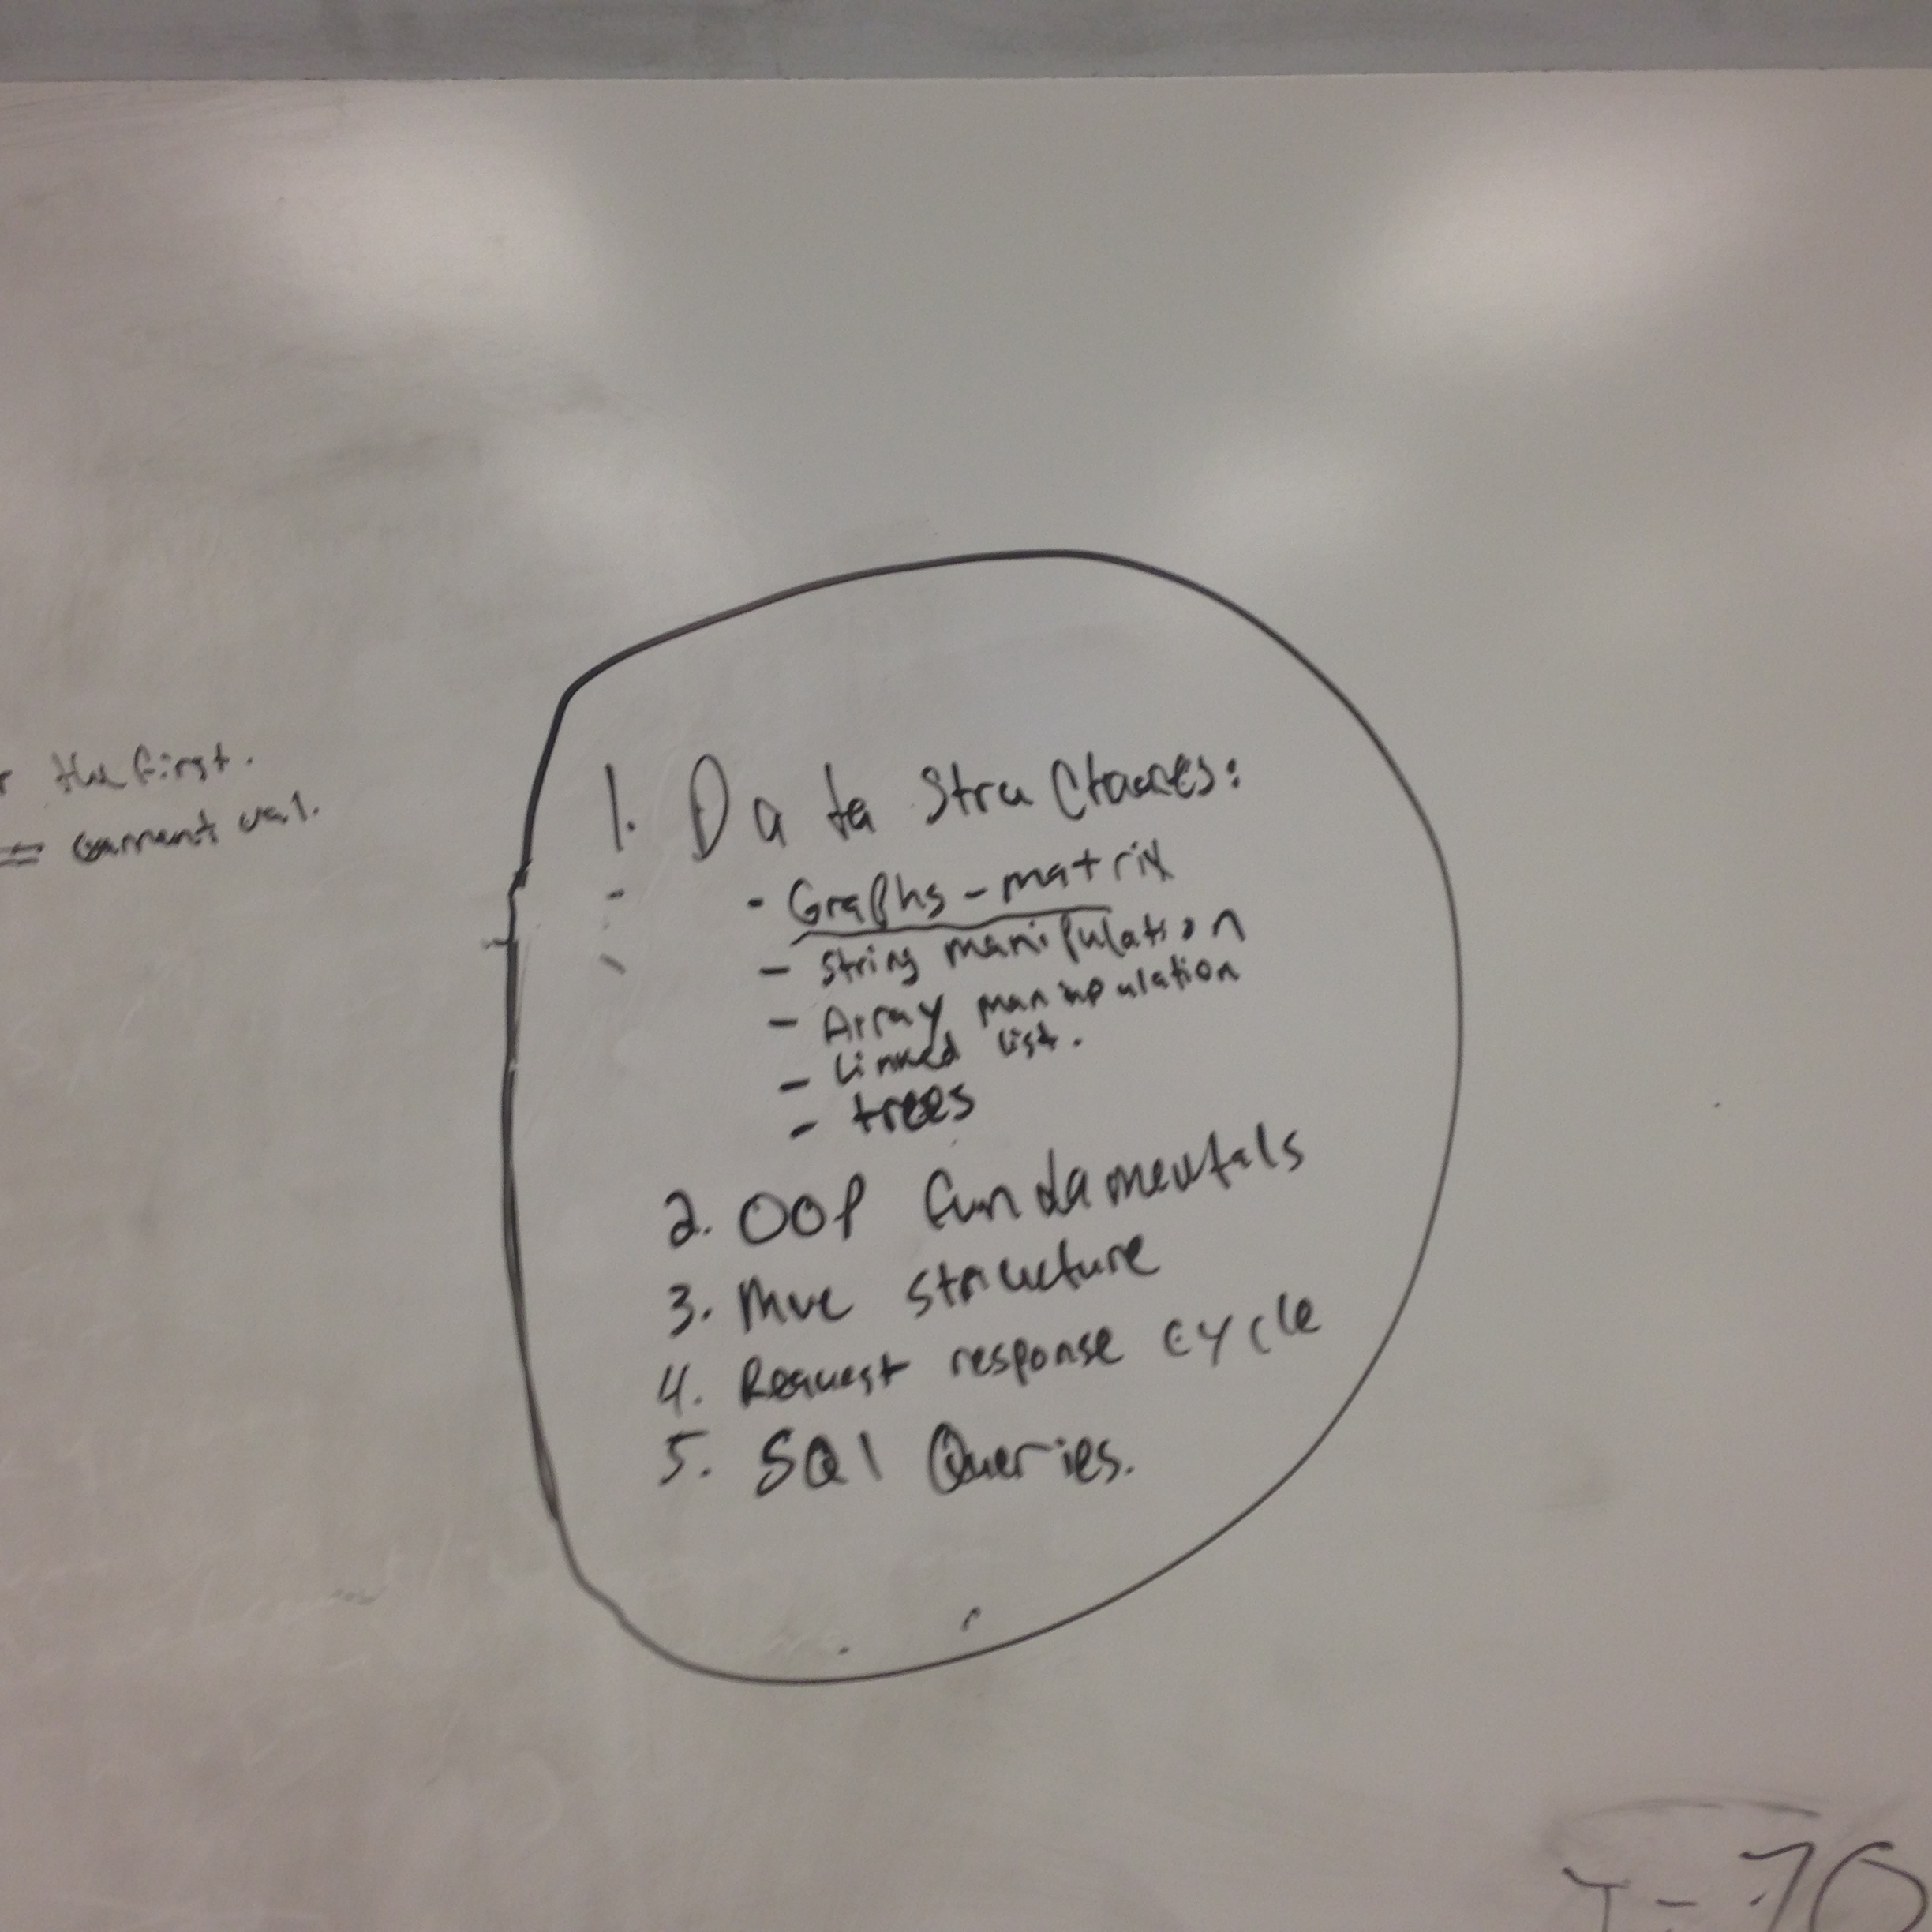 the first.
= current val.
1. Data Structures:
- Graphs - matrix
- String manipulation
- Array manipulation
- Linked list.
- trees
2. OOP fundamentals
3. MVC structure
4. Request response cycle
5. SQl Queries.